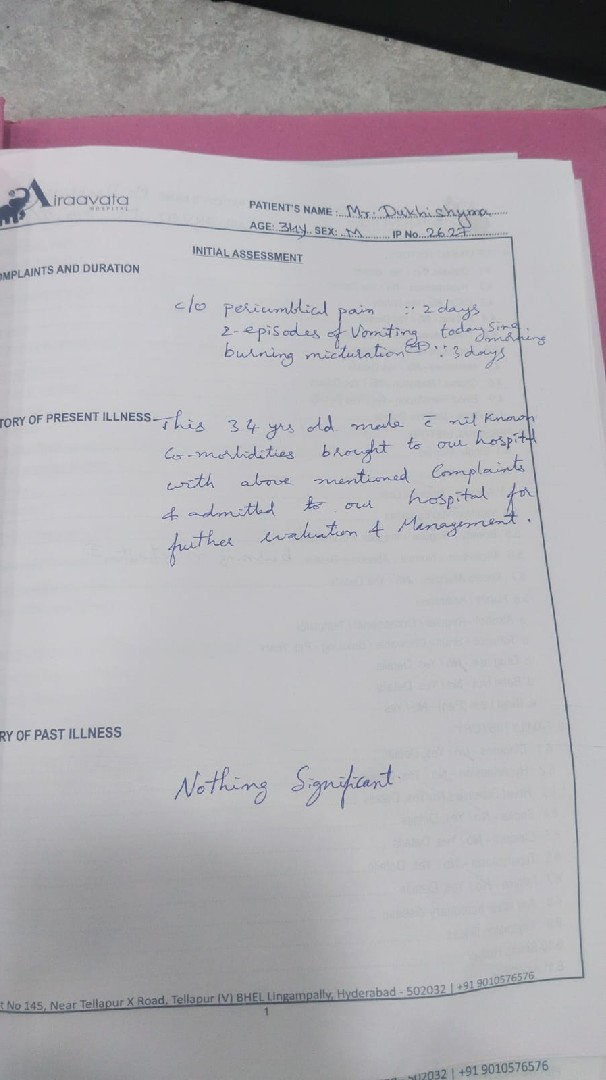 Airaavata
HOSPITAL
PATIENT'S NAME: Mr. Dukhishyma
AGE: 34y. SEX: M IP No. 2627
INITIAL ASSESSMENT
OMPLAINTS AND DURATION
c/o periumblical pain :: 2 days
2-episodes of Vomiting today Sine morning
burning micturation :: 3 days
TORY OF PRESENT ILLNESS- This 34 yrs old made c̄ nil Known
Co-morbidities brought to our hospital
with above mentioned Complaints
& admitted to our hospital for
further evaluation & Management.
RY OF PAST ILLNESS
Nothing Significant.
t No 145, Near Tellapur X Road, Tellapur (V) BHEL Lingampally, Hyderabad - 502032 | +91 9010576576
1
502032 | +91 9010576576